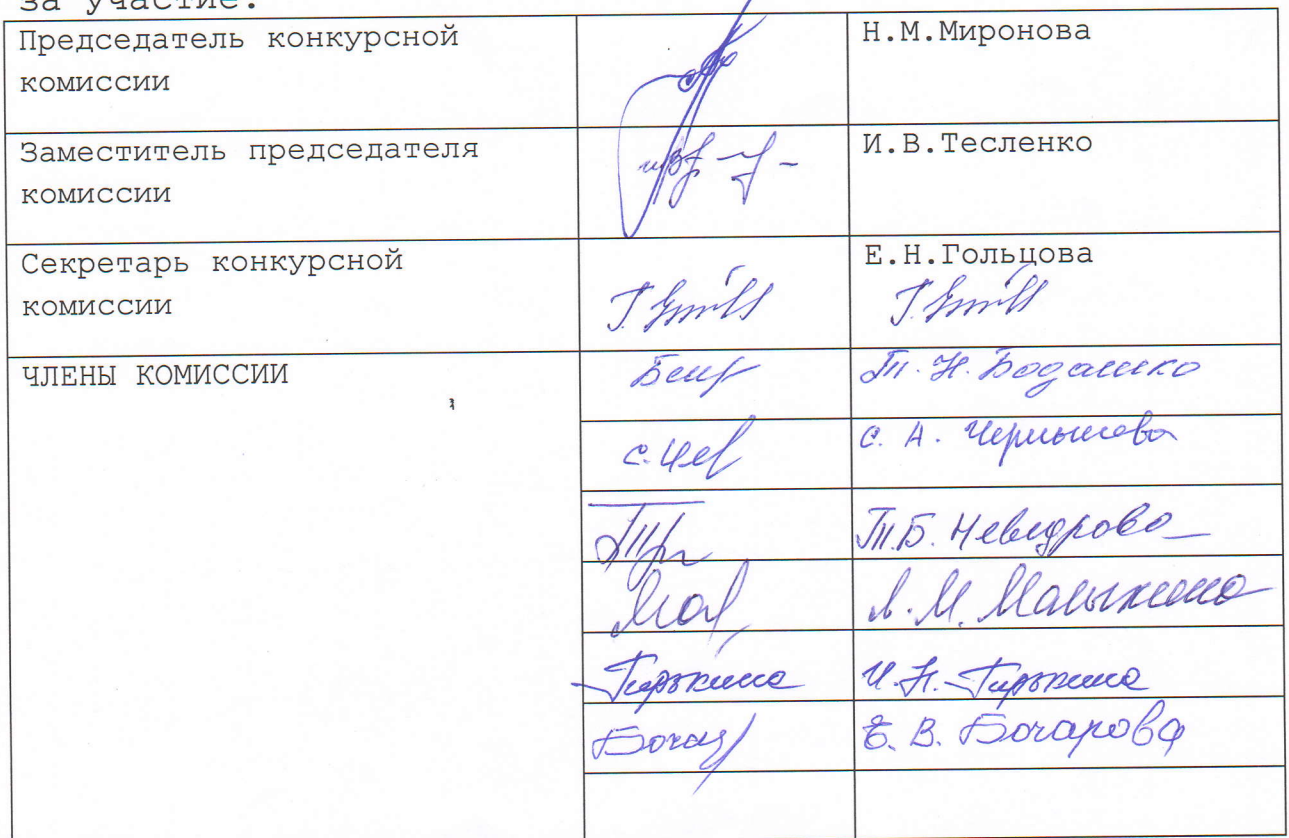 за участие.
Председатель конкурсной
комиссии
Н.М.Миронова
Заместитель председателя
комиссии
И.В.Тесленко
Секретарь конкурсной
комиссии
Е.Н.Гольцова
ЧЛЕНЫ КОМИССИИ
Т. Н. Бодашко
С. А. Чернышова
Т.Б. Неведрова
Л. М. Малыхина
Гирькина
И. Н. Гирькина
Е. В. Бочарова